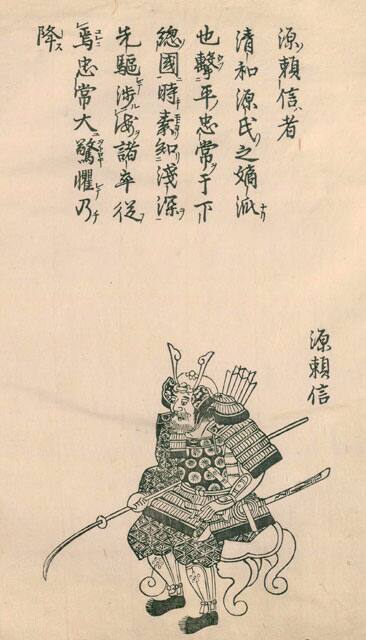 源頼信者
清和源氏之嫡派
也擊平忠常于下
總國時素知淺深
先驅渉海諸卒從
焉忠常大驚懼乃
降
源頼信